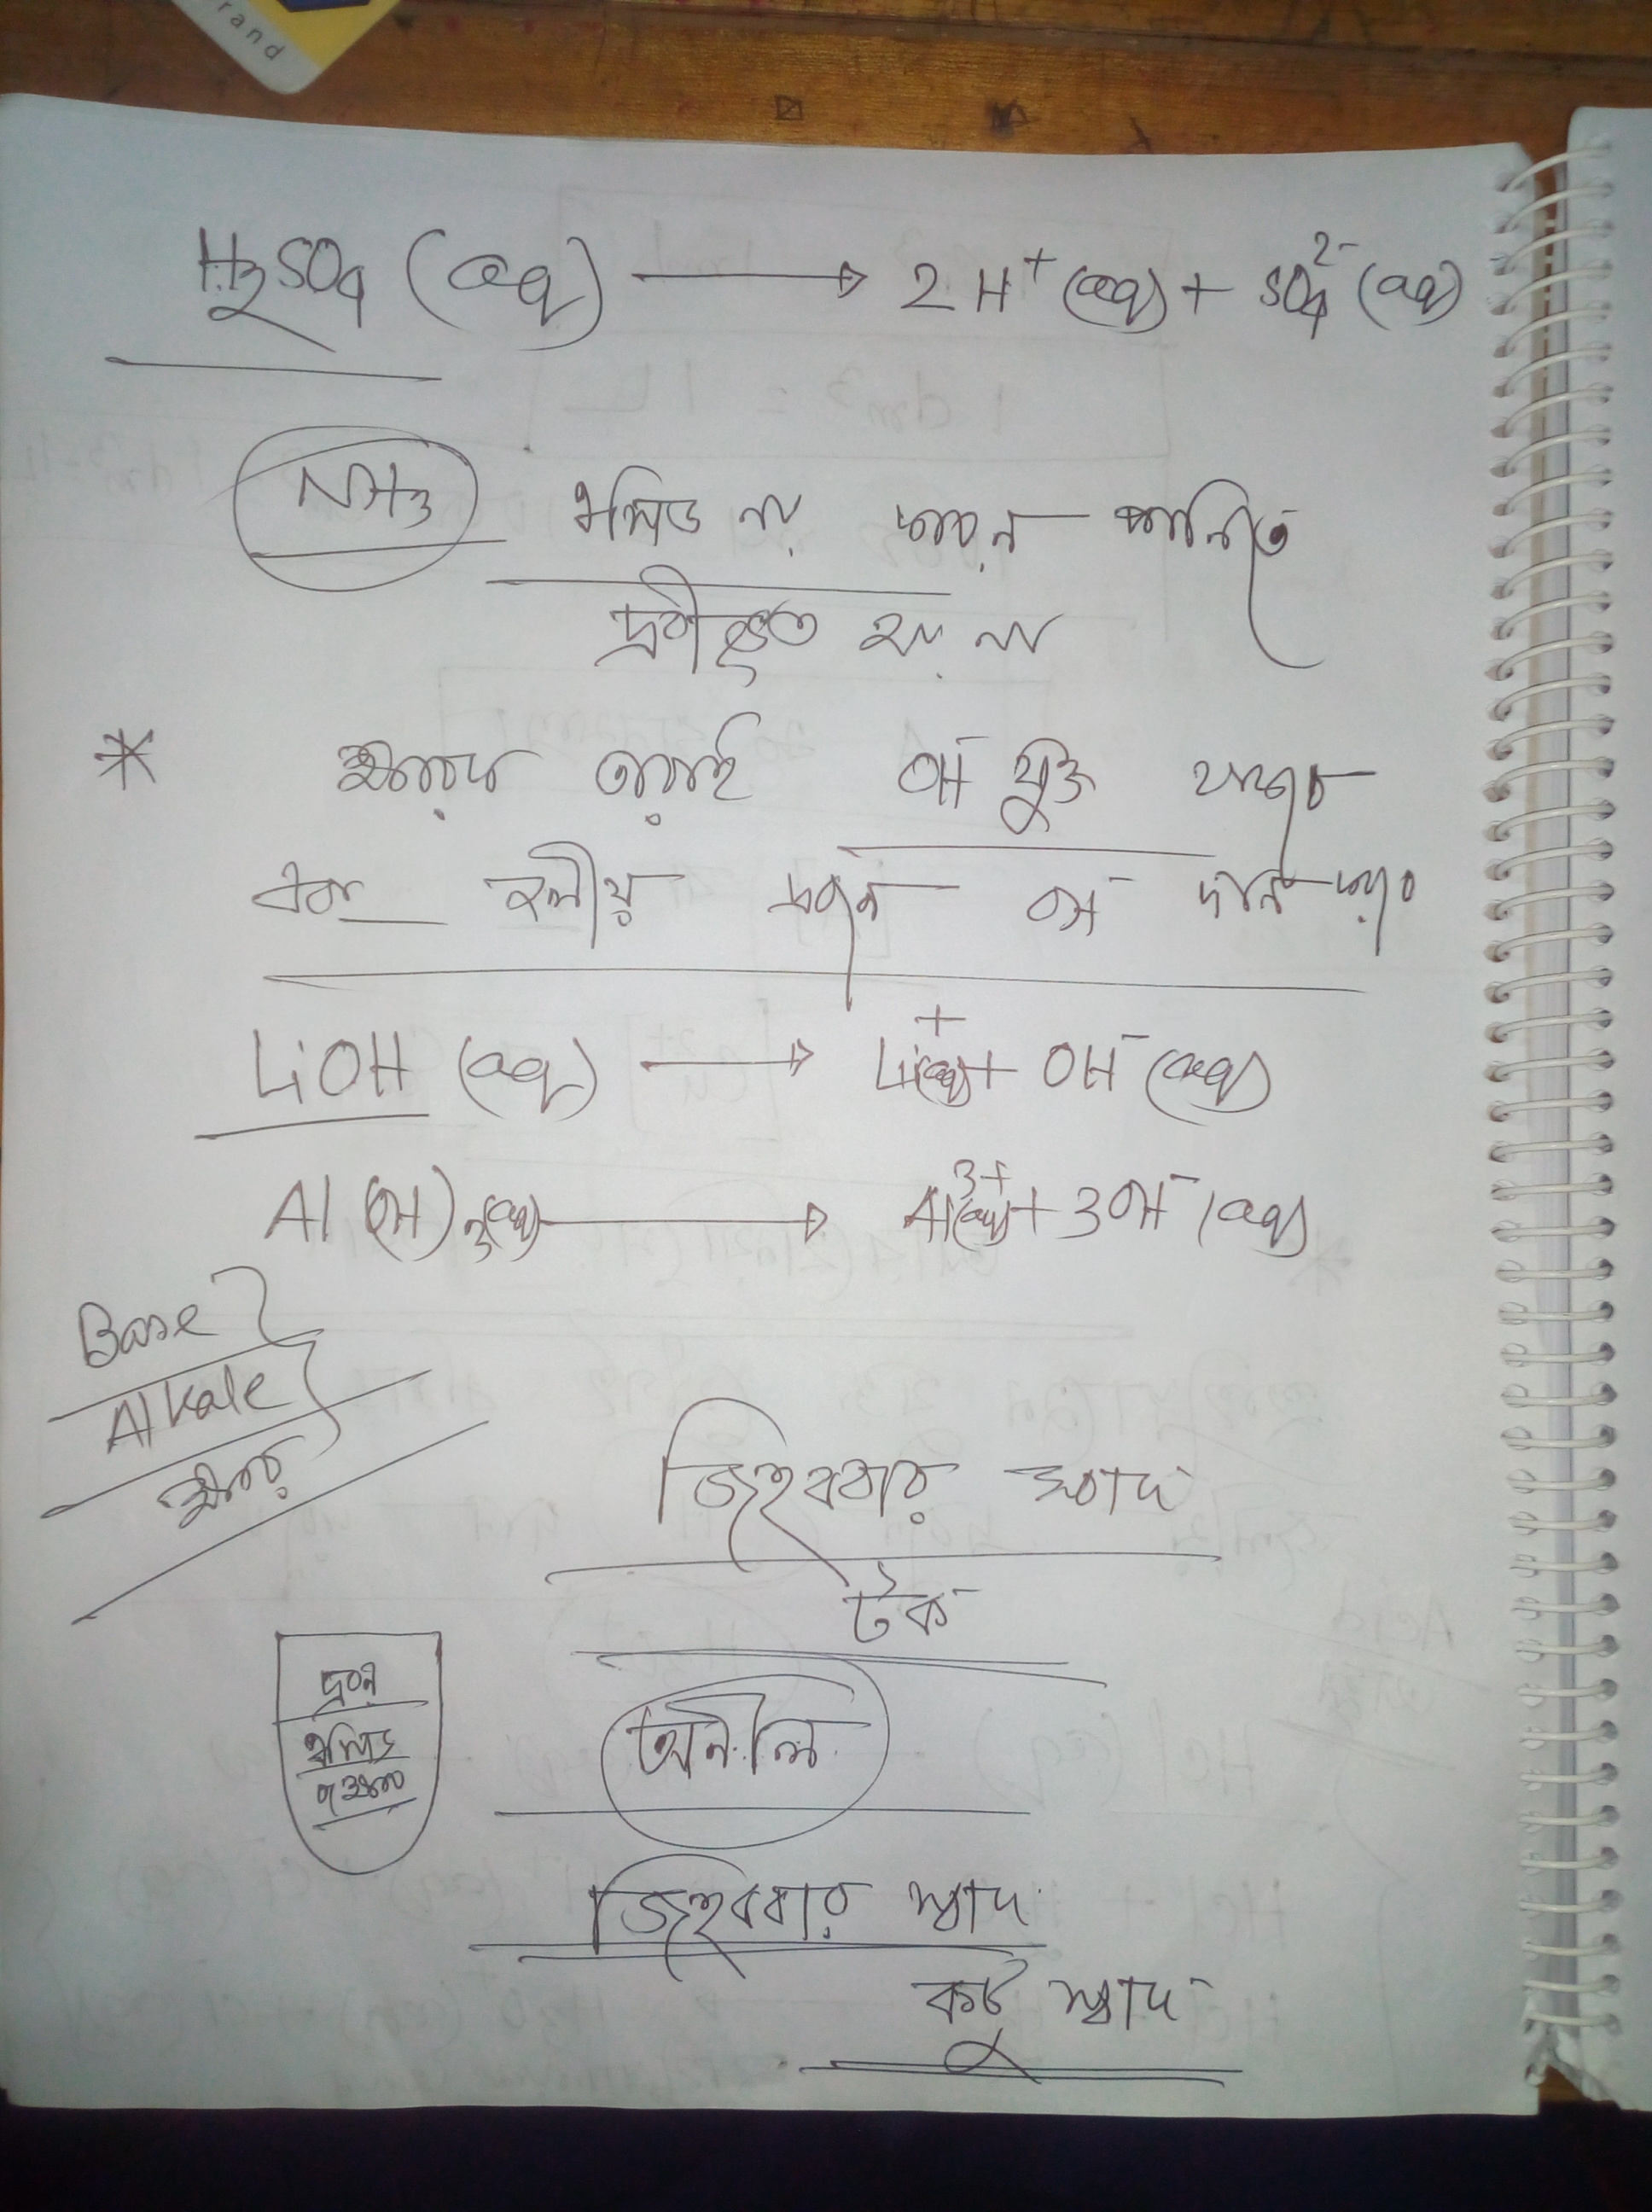 rand
H₂SO₄ (aq) ⟶ 2H⁺ (aq) + SO₄²⁻ (aq)
NH₃ এসিড নয় কারন পানিতে
দ্রবীভূত হয় না
* ক্ষারক তারাই OH⁻ যুক্ত থাকে
এবং জলীয় দ্রবনে OH⁻ দান করে
LiOH (aq) ⟶ Li⁺(aq) + OH⁻ (aq)
Al(OH)₃(aq) ⟶ Al³⁺(aq) + 3OH⁻ (aq)
Base
Alkale
ক্ষার
জিহববার স্বাদ
টক
দ্রবন
এসিড
অনীলি
জিহববার স্বাদ
কটু স্বাদ